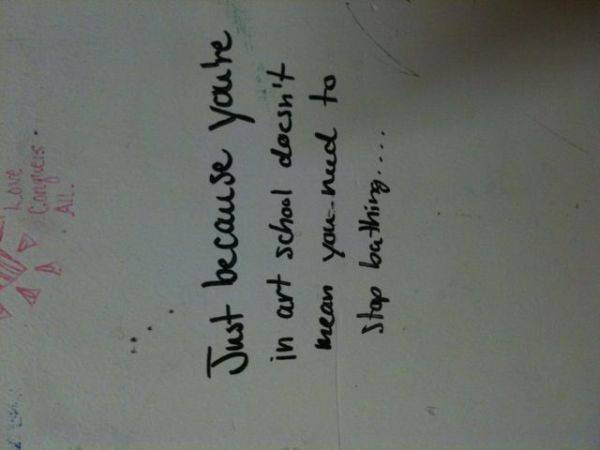 Love
Conquers.
All.
Just because you're
in art school doesn't
mean you need to
stop bathing....